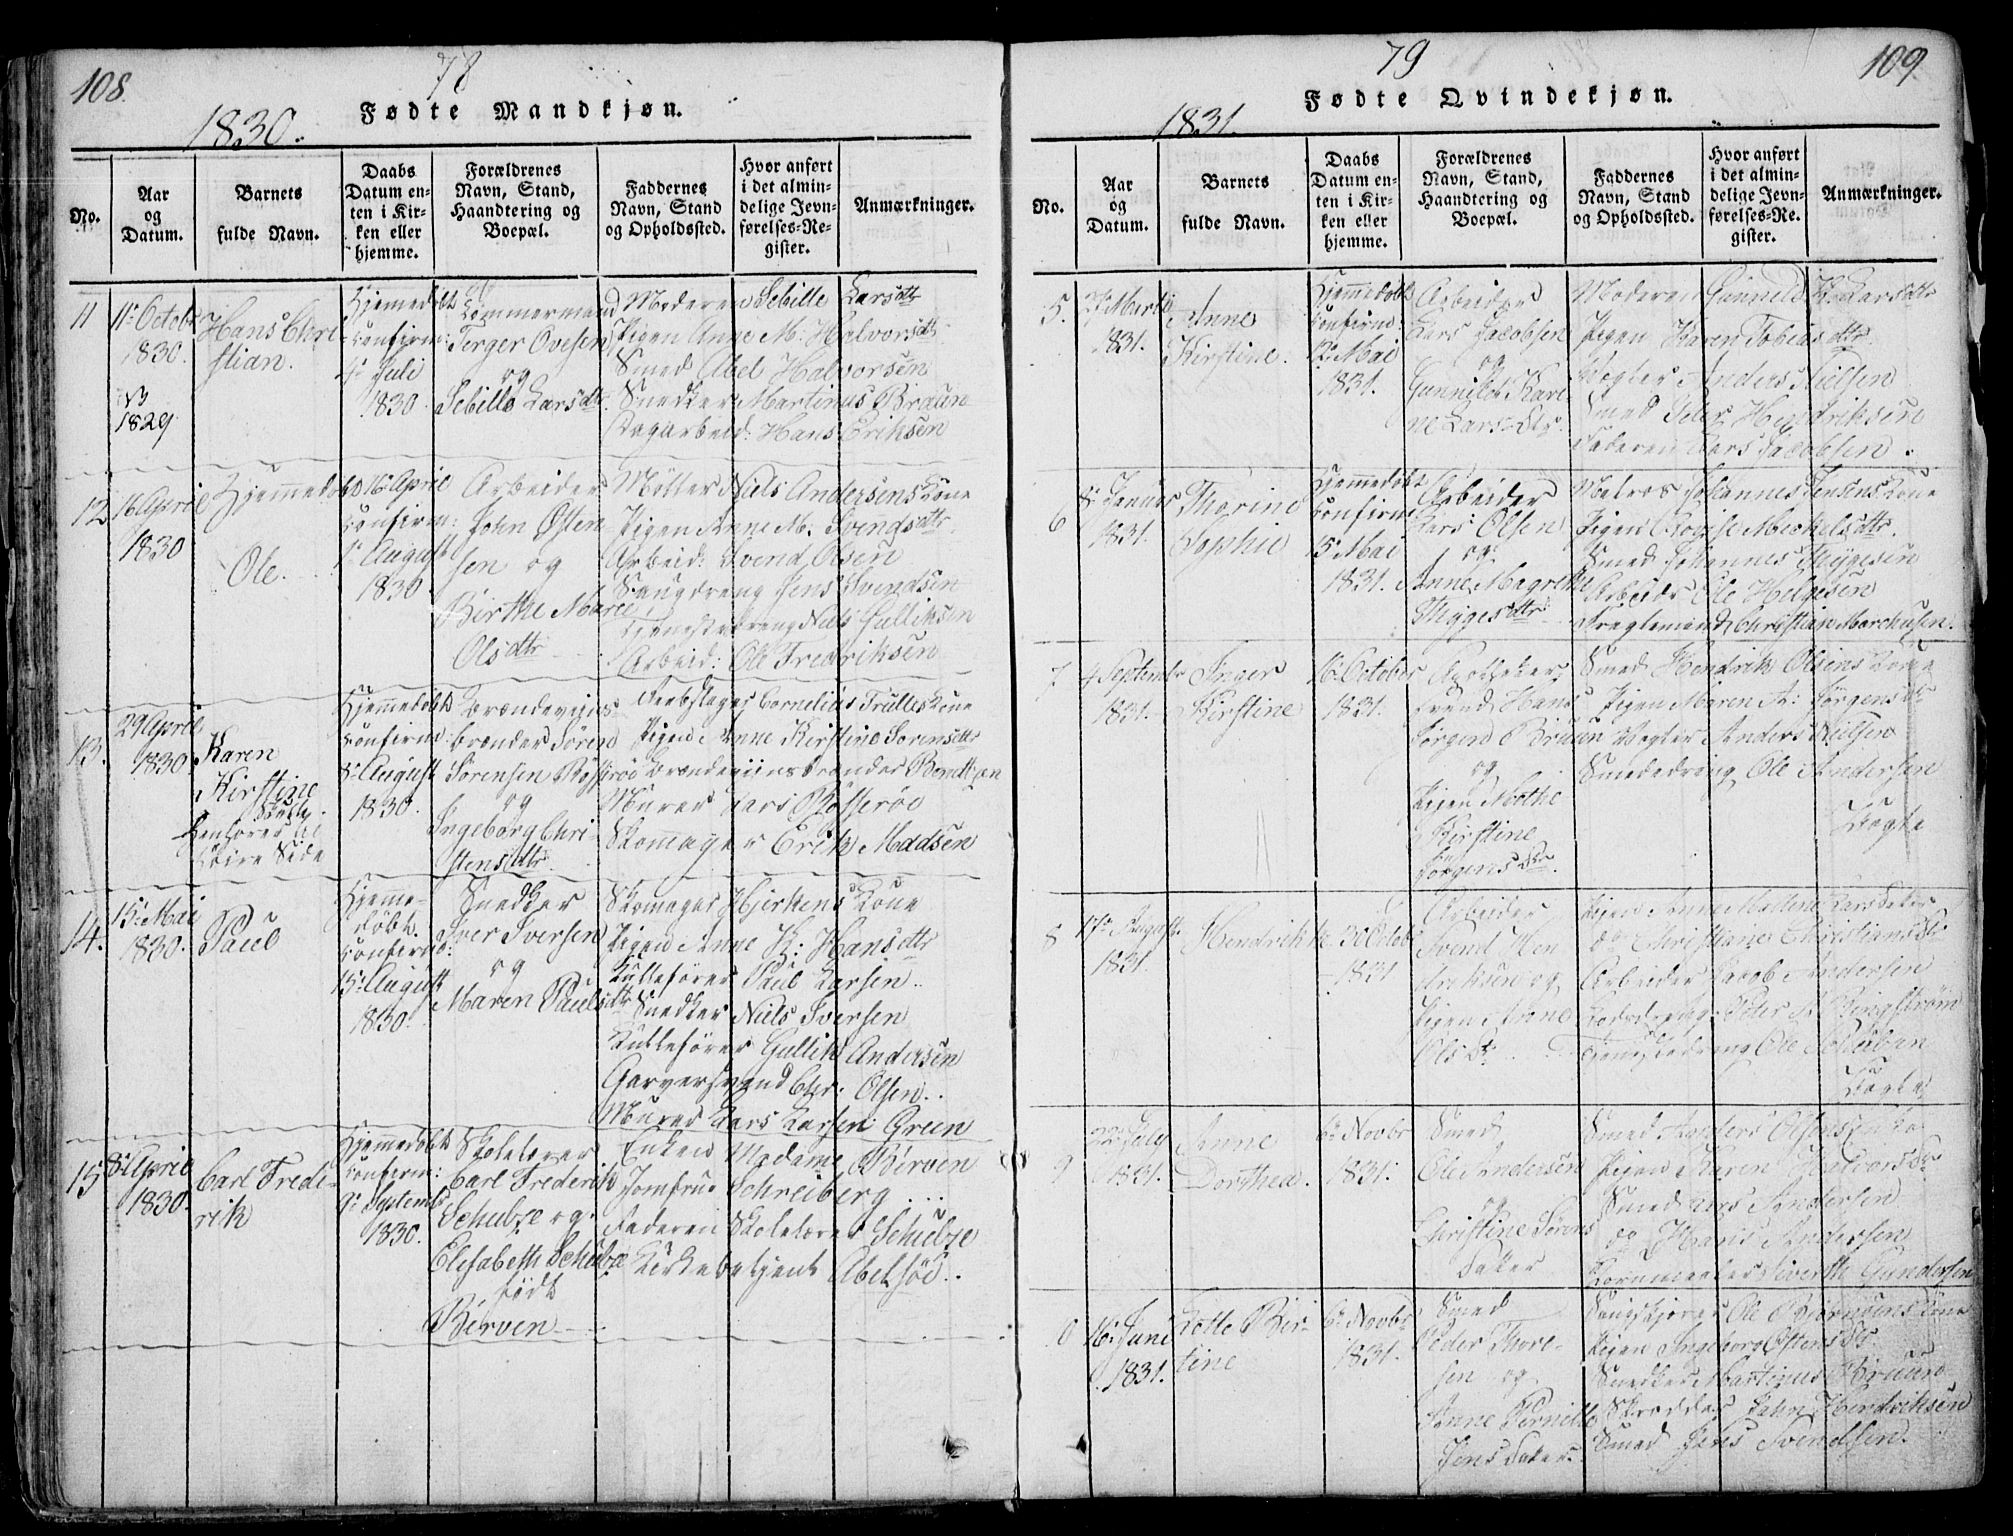 108.
78
1830.
Fødte Mandkjøn.
No.
Aar
og
Datum.
Barnets
fulde Navn.
Daabs
Datum en-
ten i Kir-
ken eller
hjemme.
Forældrenes
Navn, Stand,
Haandtering og
Boepæl.
Faddernes
Navn, Stand
og Opholdssted.
Hvor anført
i det almin-
delige Jevn-
førelses-Re-
gister.
Anmærkninger.
11
11te Octobr
1830.
1829
Hans Chri
stian.
Hjemedøbt
confirm:
4de Juli
1830
Tømmermand
Terger Ovesen
og
Sebille Larsdtr.
Moderen Sebille Larsdtr
Pigen Anne M: Halvorsdtr
Smed Abel Halvorsen
Snedker Martinus Bruun
Dagarbeid: Hans Eriksen
12
16 April
1830
Hjemmedøbt
Ole.
16 April
confirm:
1te August
1830
Arbeider
John Østen
sen og
Birthe Marie
Olsdtr
Møller Niels Andersens Kone
Pigen Anne M. Svensdtr
Arbeid: Svend Olsen
Saugdreng Jens Svendsen
Tjenestedreng Niels Gulliksen
Arbeid: Ole Fredriksen
13.
29 April
1830
Karen
Kirstine
Skulle
henføres til
høire Side
Hjemmedøbt
confirm:
8de August
1830.
Brændeviins
brænder Søren
Sørensen Røsserøe
og
Ingeborg Chri-
stensdtr
Reebslager Cornelius Trulles Kone
Pigen Anne Kirstine Sorensdtr
Brændeviinsbrænder Berntzen
Murer Lars Røsserøe
Skomager Erik Madsen
14.
15de Mai
1830.
Paul
Hjeme-
døbt.
confirm:
15de August
1830.
Snedker
Iver Iversen
og
Maren Paulsdtr
Skomager Hjerkens Kone
Pigen Anne K: Hansdtr
Kullefører Paul Larsen..
Snedker Niels Iversen
Kullefører Gullik Andersen
Garversvend Chr: Olsen..
Murer Lars Larsen Green
15
8de April
1830.
Carl Frede-
rik
Hjemedøbt
confirm:
9de Septembr
1830.
Skolelærer
Carl Frederik
Schulze og
Elisabeth Schulze
født
Børven
Enken Madame Børven
Jomfrue Schreiberg ....
Faderen Skolelærer Schulze
Kirkebetjent Abelsöe..
79
109
1831.
Fødte Qvindekjøn.
No.
Aar
og
Datum.
Barnets
fulde Navn.
Daabs
Datum en-
ten i Kir-
ken eller
hjemme.
Forældrenes
Navn, Stand,
Haandtering og
Boepæl.
Faddernes
Navn, Stand
og Opholdssted.
Hvor anført
i det almin-
delige Jevn-
førelses-Re-
gister.
Anmærkninger.
5.
Marts
1831.
Anne
Kirstine.
Hjemmedøbt
confirm:
12te Mai
1831.
Arbeider
Lars Jacobsen
og
Gunnild Kare-
ne Lars Dtr.
Moderen Gunnild K. Larsdtr
Pigen Karen Tobiasdtr
Vægter Anders Nielsen
Smed Peter Hendriksen
Faderen Lars Jacobsen.
6
8de Januar
1831.
Thorine
Sophie
Hjemmedøbt
confirm:
15de Mai
1831.
Arbeider
Lars Olsen
og
Anne Magrethe
Thygesdtr
Matros Johannes Jensens Kone
Pigen Lovise Meckelsdtr
Smed Johannes Thygesen
Arbeider Ole Helgesen
Fragtemand Christian Marchusen.
7
4 Septembr
1831.
Inger
Kirstine
16de October
1831.
Apotheker
svend Hans
Jørgend Bruun
og
Pigen Marthe
Kirstine
Jørgens Dtr.
Smed Hendrik Olsens Kone
Pigen Maren A: Jørgensdtr
Vægter Anders Nielsen
Smededreng Ole Andersen
Uægte
8
17de August
1831.
Hendrikke
30 Octobr
1831
Arbeider
Svend Hen
driksen og
Pigen Anne
Ols Dtr.
Pigen Anne Malene Larsdater
do Christiane Christiansdtr
Arbeider Jacob Andersen
Peter Ringstrøm
Tjenestedreng Ole
Uægte
9
22de July
1831.
Anne
Dorthea.
6te Novbr
1831.
Smed
Ole Andersen
og
Christine Sørens
Dater
Smed Anders Olsens Kone
Pigen Karen Halvorsdtr
Smed Lars Andersen
do Hans Andersen
Kornmaaler Siverth Gundersen
0
16de Juni
1831.
Lotte Bir-
tine
6te Novbr
1831.
Smed
Peder Thore-
sen og
Anne Pernille
Jens Dater.
Ole Bjørnsens Kone
Pigen Ingeborg Østensdtr
Snedker Martinus Bruun
Skrædder John Hendriksen
Smed Jens Svendsen.